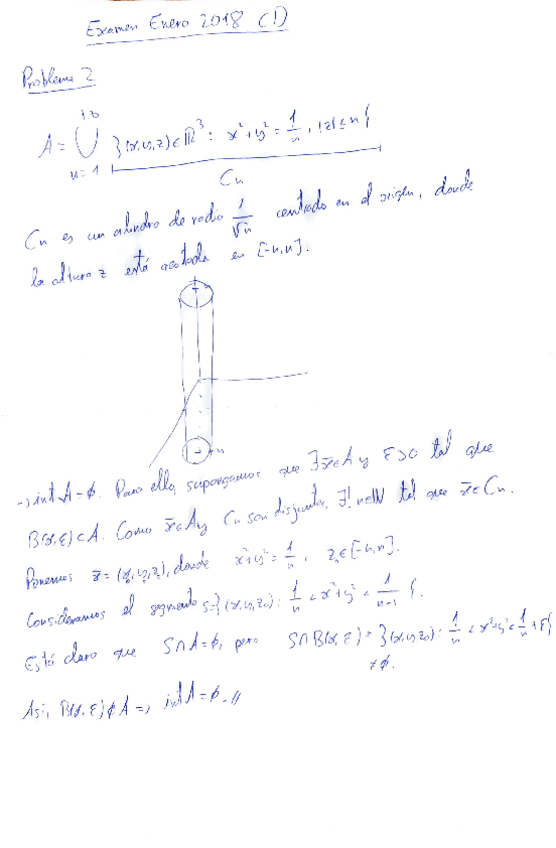 Examen Enero 2018 (1)
Problema 2
A = ⋃_{n=1}^{∞} {(x,y,z) ∈ ℝ³ : x²+y² = 1/n, |z| ≤ n}
Cn
Cn es un cilindro de radio 1/√n centrado en el origen, donde
la altura z está acotada en [-n,n].
n
-n
→ int A = ∅. Para ello, supongamos que ∃ x̄ ∈ A y ε>0 tal que
B(x̄,ε) ⊂ A. Como x̄ ∈ A y Cn son disjuntos, ∃! n∈ℕ tal que x̄ ∈ Cn.
Ponemos x̄ = (x,y,z₀), donde x²+y² = 1/n, z₀ ∈ [-n,n].
Consideramos el segmento S = {(x,y,z₀) : 1/n < x²+y² < 1/(n-1)}.
Está claro que S∩A = ∅, pero S∩B(x̄,ε) = {(x,y,z₀) : 1/n < x²+y² < 1/n + ε}
≠ ∅.
Así, B(x̄,ε) ⊄ A ⇒ int A = ∅. //